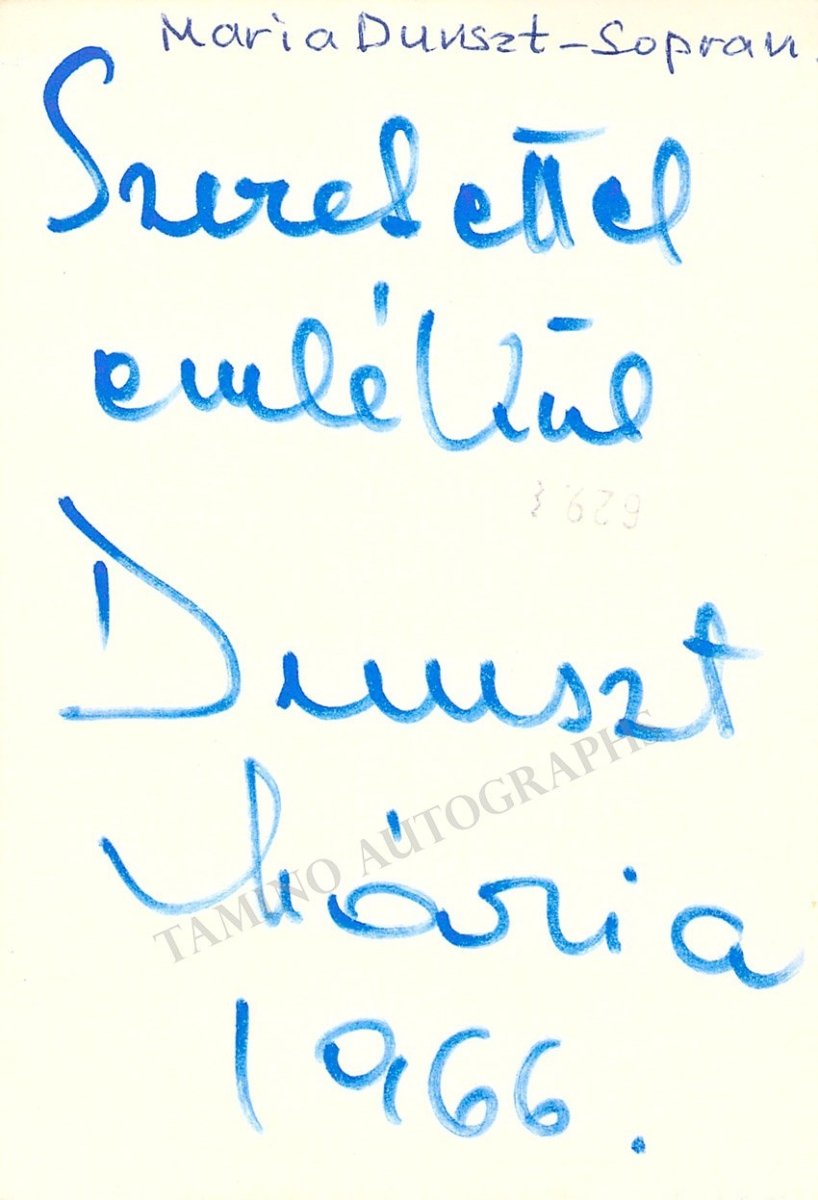 Maria Dunszt - Sopran.
Szeretettel
emlékül
3629
Dunszt
Mária
TAMINO AUTOGRAPHS
1966.